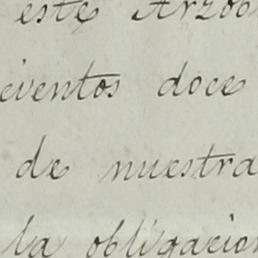 este Arzob
cientos doce
de nuestra
la obligacion